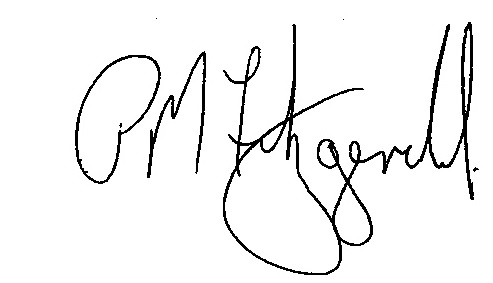 PM Fitzgerald.